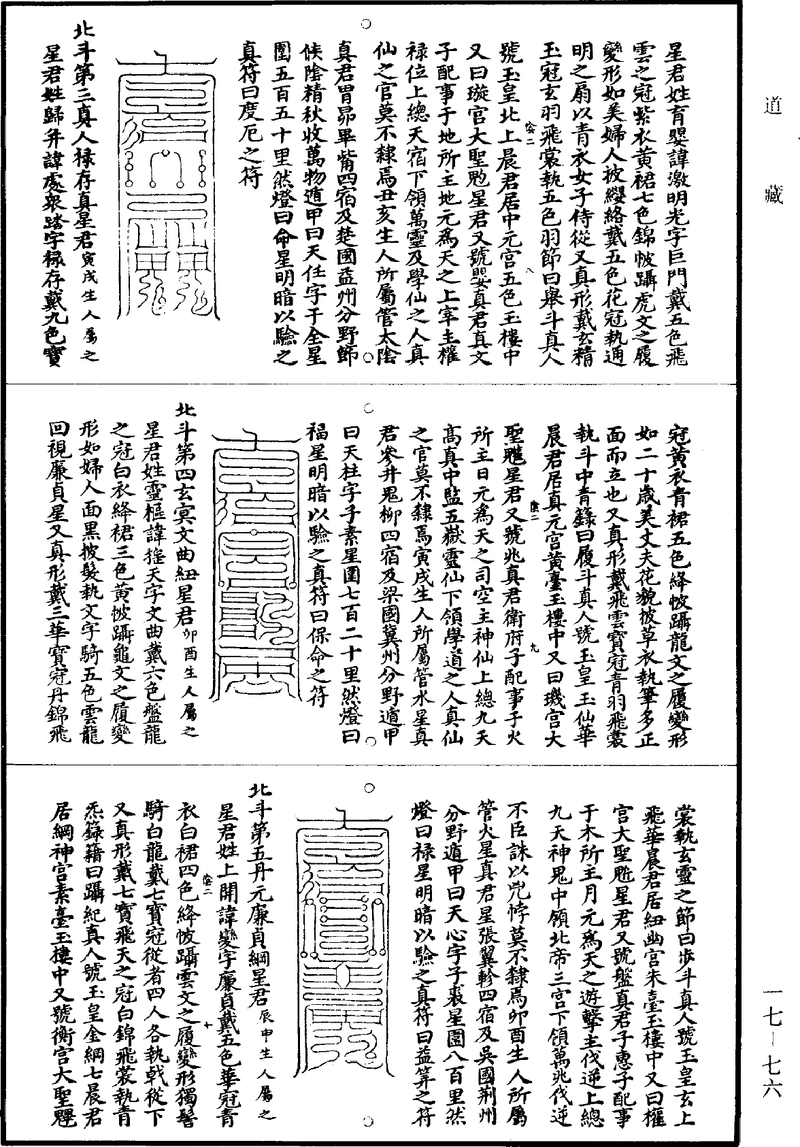 道藏
星君姓育嬰諱激明光字巨門戴五色飛
雲之冠紫衣黃裙七色錦帔躡虎文之履
變形如美婦人披纓絡戴五色花冠執通
明之扇以青衣女子侍從又真形戴玄精
玉冠玄羽飛裳執五色羽節曰舉斗真人
號玉皇北上晨君居中元宮五色玉樓中
又曰璇宮大聖魁星君又號嬰真君真文
子配事于地所主地元為天之上宰主權
祿位上總天宿下領萬靈及學仙之人真
仙之官莫不隸焉丑亥生人所屬管太陰
真君胃昴畢觜四宿及楚國益州分野節
候陰精秋收萬物遁甲曰天任字子全星
圍五百五十里然燈曰命星明暗以驗之
真符曰度厄之符
北斗第三真人祿存真星君寅戌生人屬之
星君姓歸弁諱處衆踏字祿存戴九色寶
冠黃衣青裙五色絳帔躡龍文之履變形
如二十歲美丈夫花貌披草衣執筆多正
面而立也又真形戴飛雲寶冠青羽飛裳
執斗中青籙曰履斗真人號玉皇玉仙華
晨君居真元宮黃臺玉樓中又曰璣宮大
聖魓星君又號兆真君衛府子配事于火
所主日元為天之司空主神仙上總九天
高真中監五嶽靈仙下領學道之人真仙
之官莫不隸焉寅戌生人所屬管水星真
君參井鬼柳四宿及梁國冀州分野遁甲
曰天柱字子素星圍七百二十里然燈曰
福星明暗以驗之真符曰保命之符
北斗第四玄冥文曲紐星君卯酉生人屬之
星君姓靈樞諱搖天字文曲戴六色盤龍
之冠白衣絳裙三色黃帔躡龜文之履變
形如婦人面黑披髮執文字騎五色雲龍
回視廉貞星又真形戴三華寶冠丹錦飛
裳執玄靈之節曰步斗真人號玉皇玄上
飛華晨君居紐幽宮朱臺玉樓中又曰權
宮大聖星君又號盤真君子惠子配事
于木所主月元為天之遊擊主伐逆上總
九天神鬼中領北帝三官下領萬兆伐逆
不臣誅以兇悖莫不隸焉卯酉生人所屬
管火星真君星張翼軫四宿及吳國荊州
分野遁甲曰天心字子裘星圍八百里然
燈曰祿星明暗以驗之真符曰益算之符
北斗第五丹元廉貞綱星君辰申生人屬之
星君姓上開諱變字廉貞戴五色華冠青
衣白裙四色絳帔躡雲文之履變形獨髻
騎白龍戴七寶冠從者四人各執戟從下
又真形戴七寶飛天之冠白錦飛裳執青
炁籙籍曰躡紀真人號玉皇金綱七晨君
居綱神宮素臺玉樓中又號衡宮大聖
一七—七六